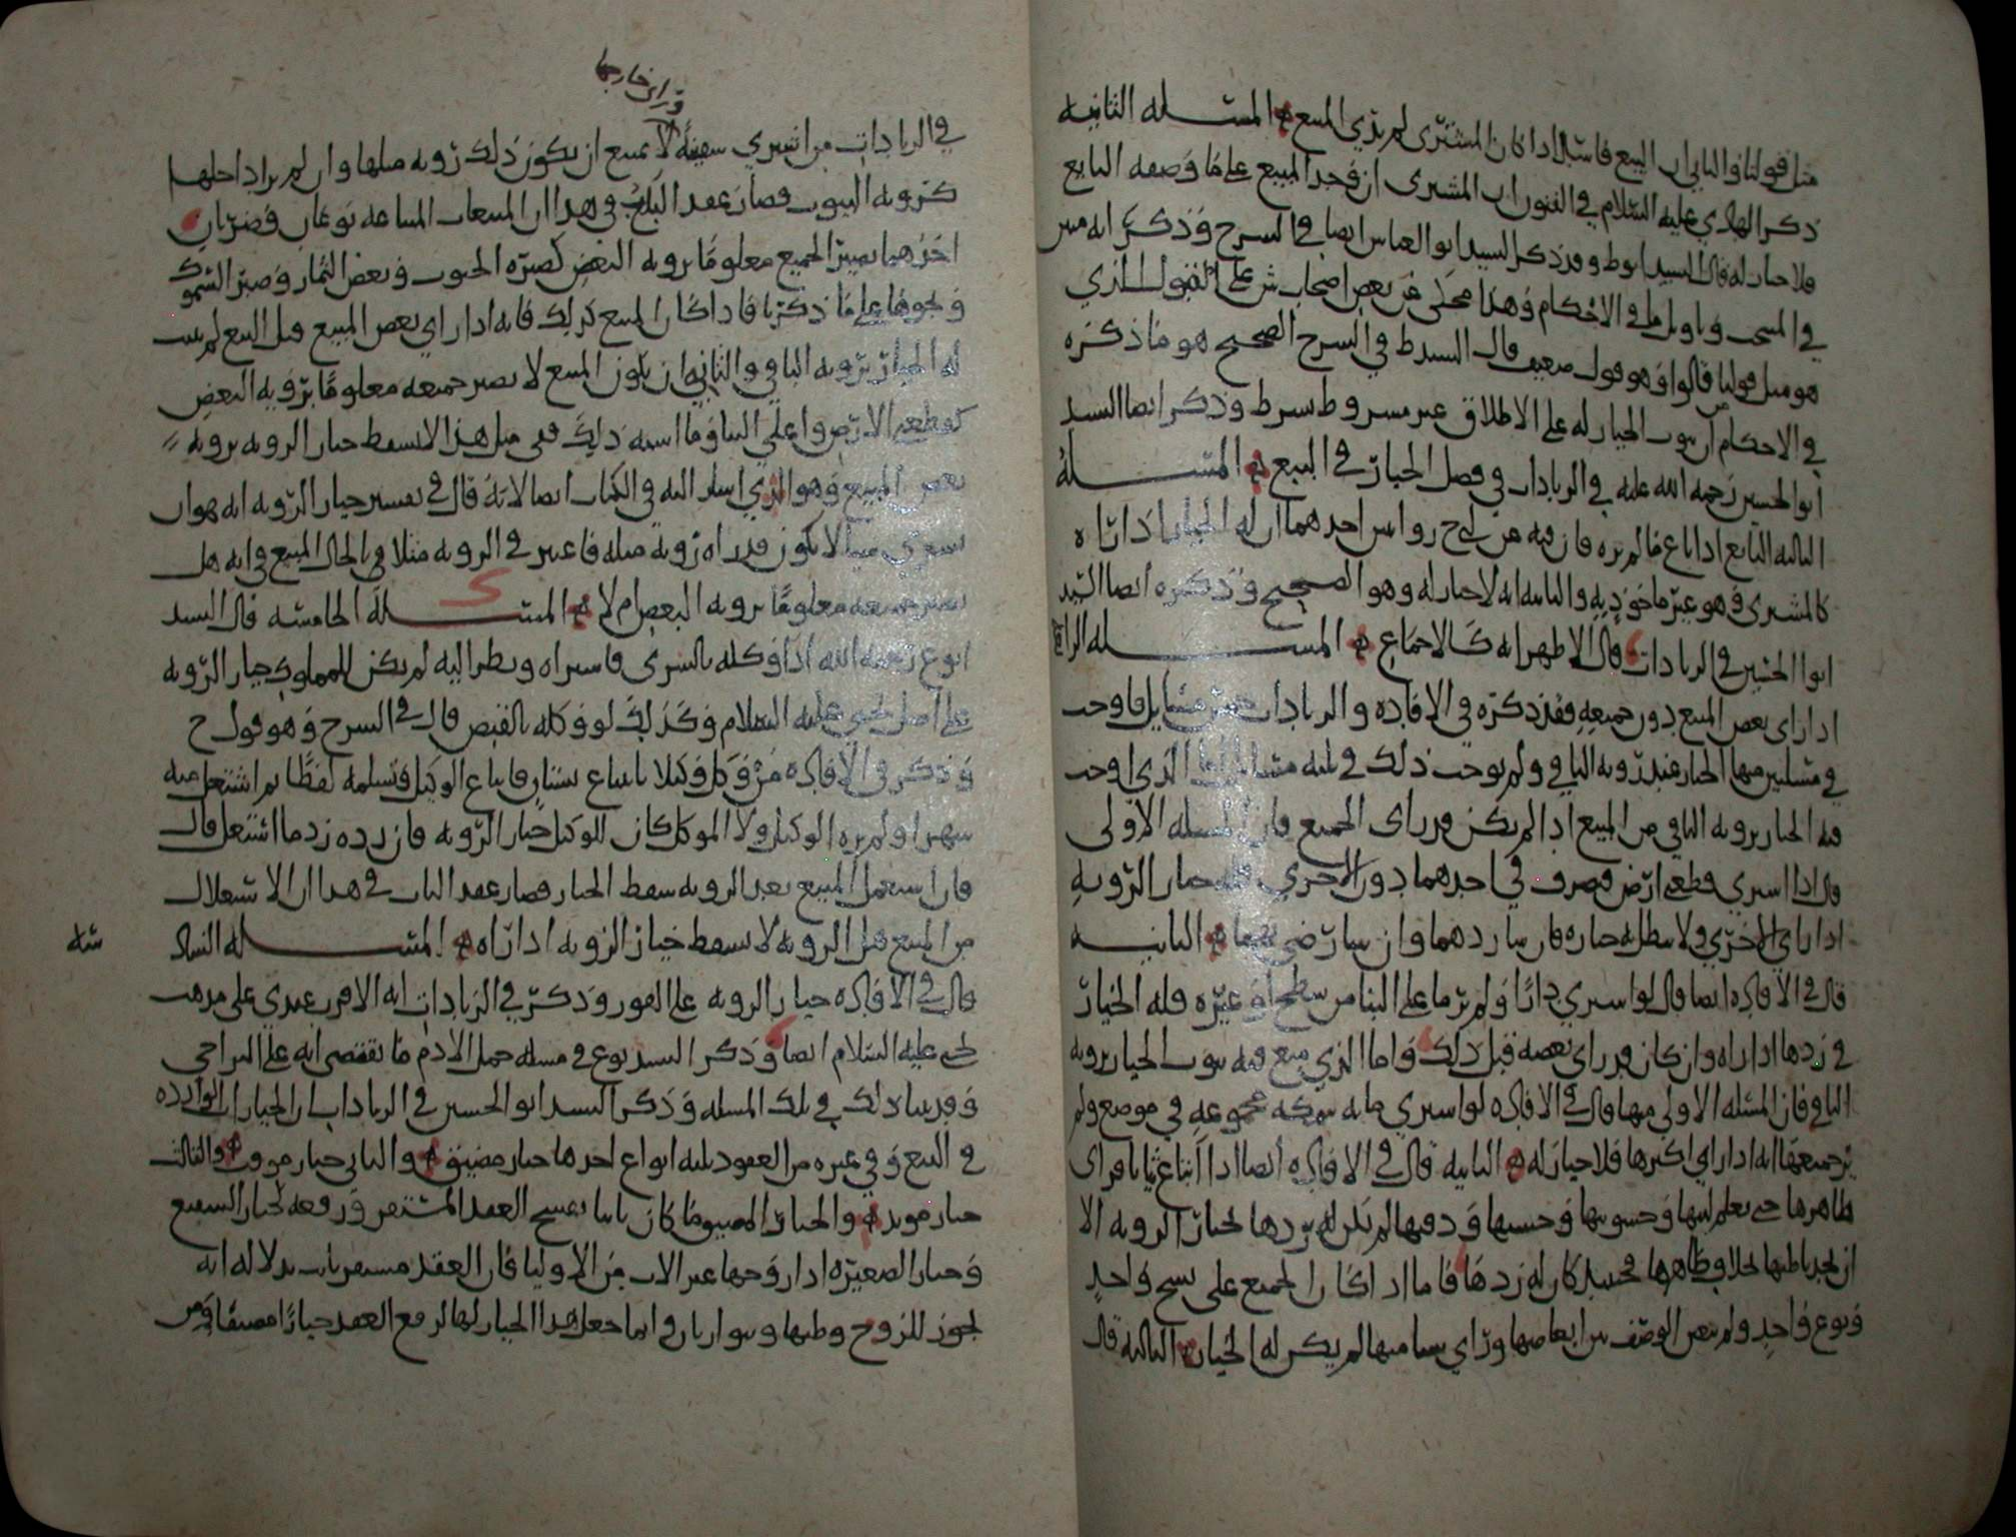 مثل قولنا والثاني ان البيع فاسد اذا كان المشتري لم يرى المبيع المسئلة الثانية
ذكر الهادي عليه السلام في الفنون ان المشترى ان وجد المبيع على ما وصفه البايع
فلا خيار له قال السيد ابو ط وقد ذكر السيد ابو العباس ايضا في الشرح وذكر انه
في الاحكام وهذا محكى عن بعض اصحاب ش على القول الذي
هو مثل قولنا قالوا وهو قول ضعيف قال السيد ط في الشرح الصحيح هو ما ذكره
في الاحكام ان ثبوت الخيار له على الاطلاق غير مشروط بشرط وذكر ايضا السيد
ابو الحسين رحمه الله عليه في الزيادات في فصل الخيار في البيع المسئلة
الثالثة البايع اذا باع ما لم يره فان فيه عن ح روايتين احدهما ان له الخيار اذا راه
كالمشتري وهو غير ماخوذ به والثانيه انه لا خيار له وهو الصحيح وذكره ايضا السيد
ابوا الحسين في الزيادات قال الاظهر انه كالاجماع المسئله الرابعة
اذا راى بعض المبيع دون جميعه فقد ذكره في الافاده والزيادات خمس مسايل فاوجب
في مسئلتين منها الخيار عند رؤية الباقي ولم يوجب ذلك في ثلثه مسايل فاما الذي اوجب
فيه الخيار برؤيه الباقي من المبيع اذا لم يكن قد راى الجميع فان المسئله الاولى
قال اذا اشترى قطعتي ارض فتصرف في احدهما دون الاخرى فله خيار الرؤية
اذا راى الاخرى ولا يبطل به خياره فان شا ردهما وان شا رضي بهما الثانيه
قال في الافاده ايضا قال لو اشترى دارا ولم ير ما على البنا من سطح او غيره فله الخيار
في ردها اذا راه وان كان قد راى بعضه قبل ذلك واما الذي منع فيه ثبوت الخيار برويه
الباقي فان المسئله الاولى منها قال في الافاده لو اشترى مايه سمكه مجموعه في موضع ولم
ير جميعها انه اذا راى اكثرها فلا خيار له الثانيه قال في الافاده ايضا اذا ابتاع ثيابا فراى
ظاهرها حتى يعلم لينها وخشونتها وحسنها ودقيها لم يكن له يردها لخيار الرويه الا
ان يجد باطنها بخلاف ظاهرها فحينئذ كان له ردها فاما اذا كان الجميع على نسج واحد
ونوع واحد ولم يتغير الوصف من ابعاضها وراى شيا منها لم يكن له الخيار الثالثه قال
قد راى خارجها
في الزيادات من اشترى سفينة لا يمنع ان يكون ذلك رويه مثلها وان لم ير داخلها
كرويه البيوت فصار عقد الباب في هذا ان المبيعات المشاعه نوعان وضربان
احدهما يصير الجميع معلوما برويه البعض كصبره الحبوب وبعض الثمار وصبر السموك
ونحوها على ما ذكرنا فاذا كان المبيع كذلك فانه اذا راى بعض المبيع قبل البيع لم يثبت
له الخيار برويه الباقي والثاني ان يكون المبيع لا يصير جميعه معلوما برويه البعض
كقطعتي الارض واعلى البنا وما اشبه ذلك ففي مثل هذا لا يسقط خيار الرويه برويه
بعض المبيع وهو الذي اشار اليه في الكتاب ايضا لانه قال في تفسير خيار الرويه انه هو ان
يشتري شيا لا يكون قد راه رويه مثله فاعتبر في الرويه مثلا في الحال المبيع في انه هل
يصير جميعه معلوما برويه البعض ام لا المسئلة الخامسه قال السيد
ابو ع رحمه الله اذا وكله بالشرى فاشتراه ونظر اليه لم يكن للمملوك خيار الرويه
على اصل يحيى عليه السلام وكذلك لو وكله بالقبض قال في الشرح وهو قول ح
وذكر في الافاده من وكل وكيلا بابتياع بستان فابتاع الوكيل وتسلمه لفظا ثم اشتغل عنه
شهرا ولم يره الوكيل ولا الموكل كان للوكيل خيار الرويه فان رده رد ما استغل قال
فان استعمل المبيع بعد الرويه سقط الخيار فصار عقد الباب في هذا ان الاستغلال
من المبيع قبل الرويه لا يسقط خيار الرويه اذا راه المسئله الساد
سه
قال في الافاده خيار الرويه على الفور وذكر في الزيادات انه الاقرب عندي على مذهب
يحيى عليه السلام ايضا وذكر السيد ابو ع في مسئلة حمل الادم ما يقتضي انه على التراخي
وقد بينا ذلك في تلك المسئله وذكر السيد ابو الحسين في الزيادات ان الخيارات الوارده
في البيع وفي غيره من العقود ثلثه انواع احدها خيار مضيق والثاني خيار موقت والثالث
خيار موبد والخيار المضيق ما كان بابا يفسخ العقد المستقر ورفعه لخيار الشفيع
وخيار الصغيره اذا زوجها غير الاب من الاوليا فان العقد مستقر ثابت بدلالة انه
يجوز للزوج وطيها ويتوارثان وانما جعل هذا الخيار لها لرفع العقد خيارا مضيقا ومن